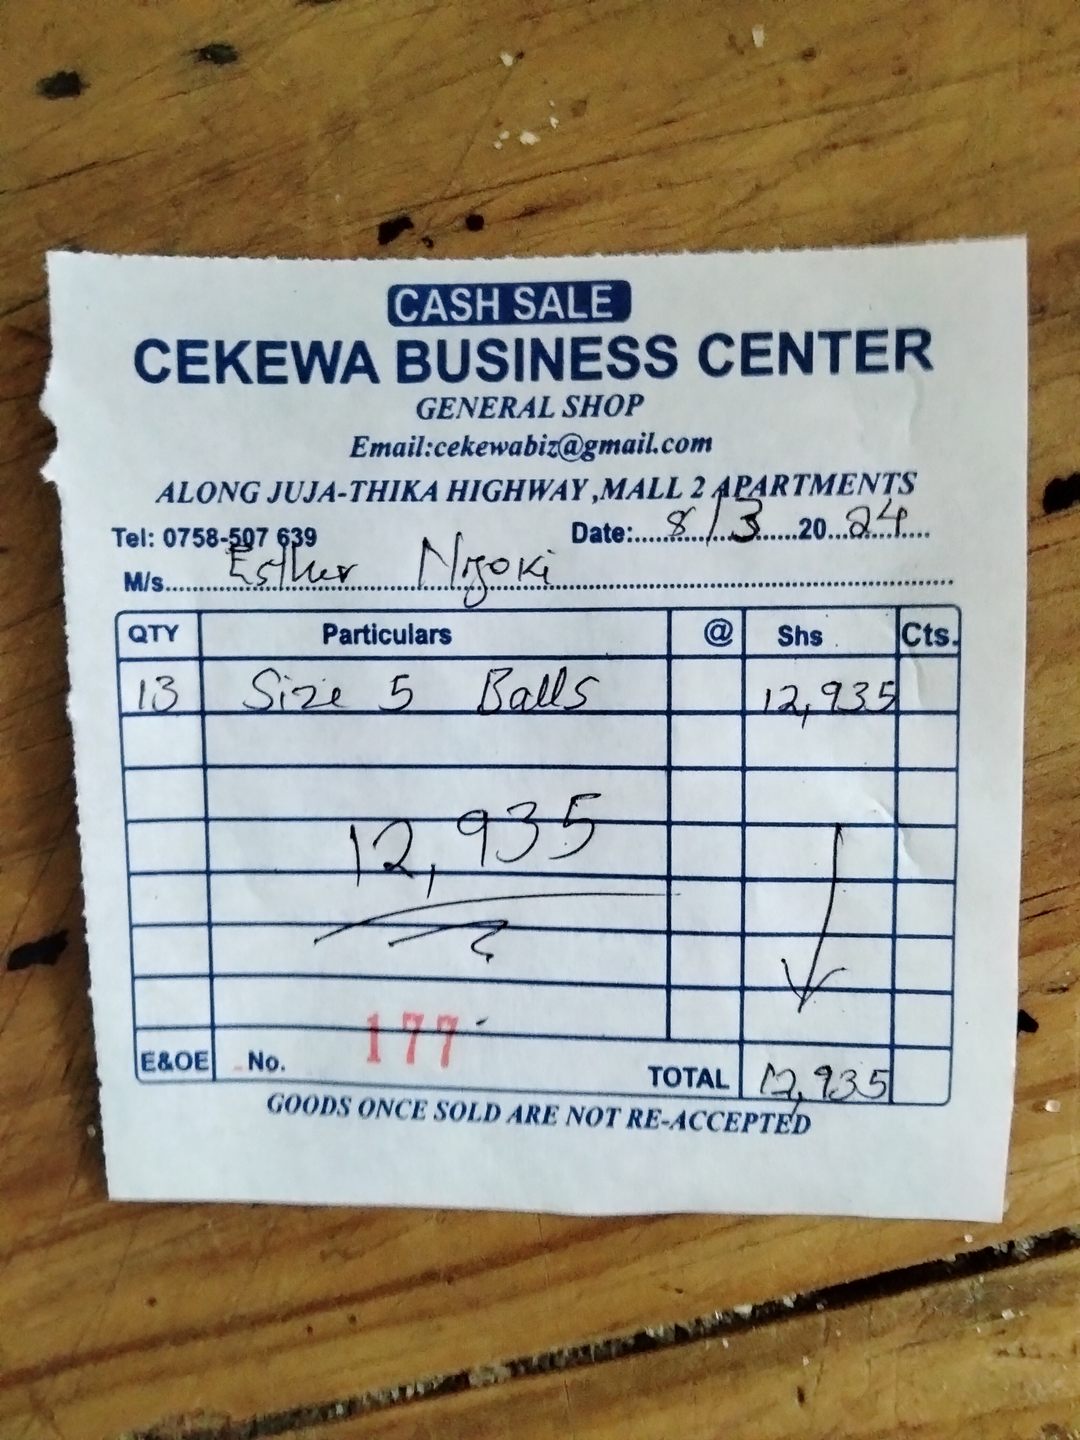 CASH SALE
CEKEWA BUSINESS CENTER
GENERAL SHOP
Email:cekewabiz@gmail.com
ALONG JUJA-THIKA HIGHWAY ,MALL 2 APARTMENTS
Tel: 0758-507 639 Date:....8/3......20...24....
M/s.....Esther Njoki.....
QTY Particulars @ Shs Cts.
13 Size 5 Balls 12,935
12,935
E&OE No. 177 TOTAL 12,935
GOODS ONCE SOLD ARE NOT RE-ACCEPTED